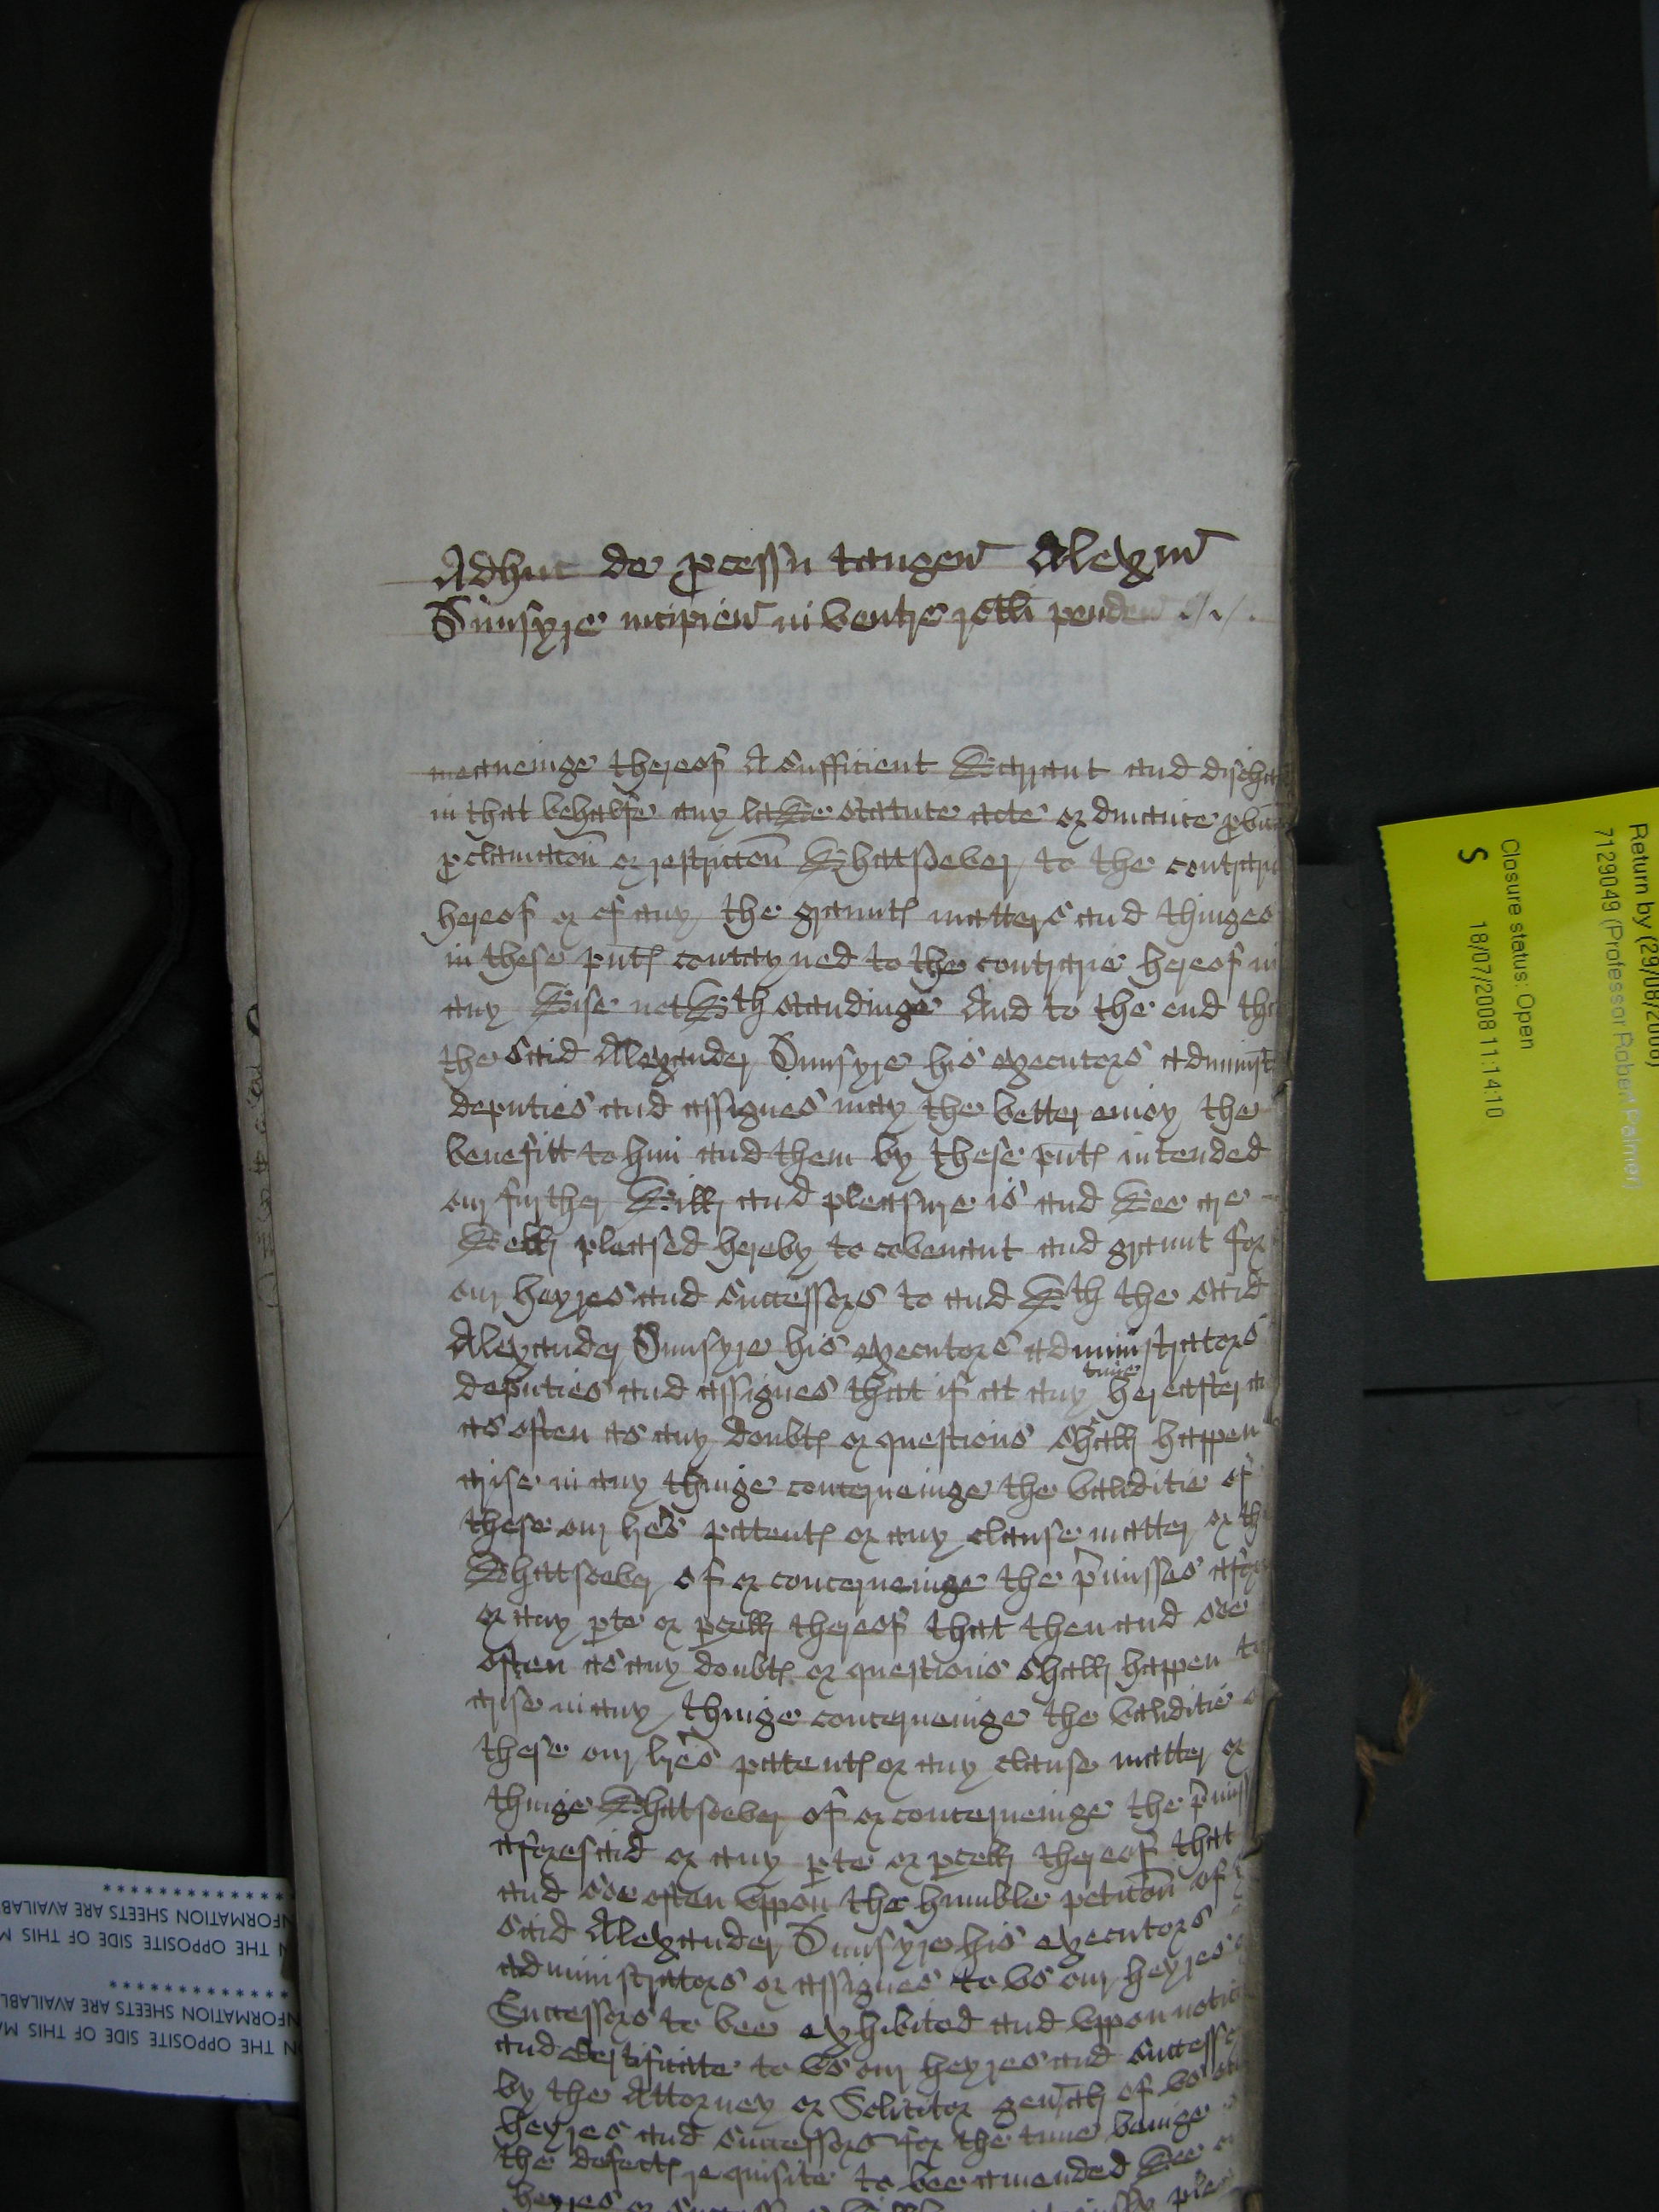 Adhuc de pcessu tangen Alexm
Dunsyre incipien in ventre rotli penden
meaneinge thereof A sufficient Warrant and discha
in that behalfe any lawe statute acte ordinance pvis
pclamacon or restriccon Whatsoever to the contrary
hereof or of any the graunt matters and thinges
in these pnt contayned to the contrarie hereof in
any Wise notwthstandinge And to the end tha
the said Alexander Dunsyre his executors administ
deputies and assignes may the better enioy the
benefitt to him and them by these pnt intended
our further Will and pleasure is and Wee are
Well pleased hereby to covenant and graunt for
our heyres and successors to and Wth the said
Alexander Dunsyre his executors administrators
deputies and assignes that if at any tyme hereafter a
as often as any doubt or questions shall happen
arise in any thinge concerneinge the validitie of
these our lres patent or any clause matter or th
Whatsoever of or concerneinge the pmisses afor
or any pte or pcell thereof that then and soe
often as any doubt or questions shall happen to
arise in any thinge concerneinge the validitie o
these our lres patent or any clause matter or
thinge Whatsoever of or concerneinge the pmiss
aforesaid or any pte or pcell thereof that
and soe often vppon the humble peticon of
said Alexander Dunsyre his executors
administrators or assignes to vs our heyres
Successors to bee exhibited and vppon notic
and Certificate to vs our heyres and successo
by the Attorney or Solicitor genrall of vs our
heyres and successors for the tyme beinge
the defect requisite to bee amended Wee
heyres or
Return by (29/08/2008)
7129049 (Professor Robert Palmer)
Closure status: Open
S 18/07/2008 11:14:10
**************
NFORMATION SHEETS ARE AVAILAB
N THE OPPOSITE SIDE OF THIS M
**************
NFORMATION SHEETS ARE AVAILABL
N THE OPPOSITE SIDE OF THIS MA